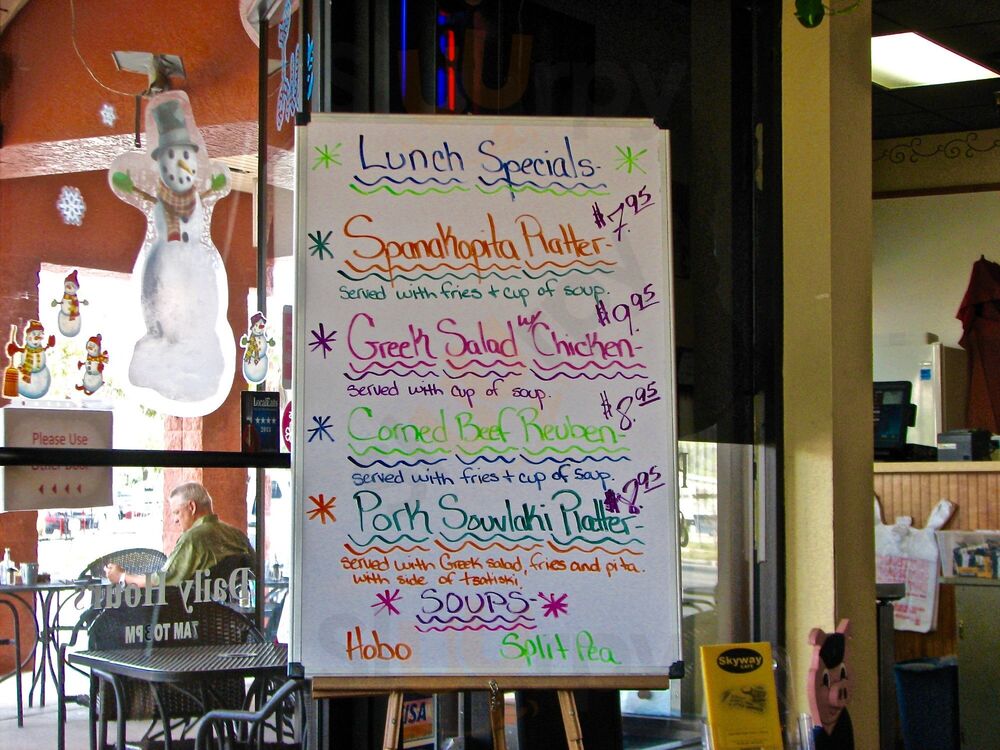 Lunch Specials-
Spanakopita Platter- $7.95
served with fries + cup of soup.
Greek Salad w/ Chicken- $9.95
served with cup of soup.
Corned Beef Reuben- $8.95
served with fries + cup of soup.
Pork Souvlaki Platter-
served with Greek salad, fries and pita.
with side of tsatiski.
SOUPS-
Hobo
Split Pea
Please Use
Other Door
LocalEats
Daily Hours
7AM TO 3PM
Skyway
VISA